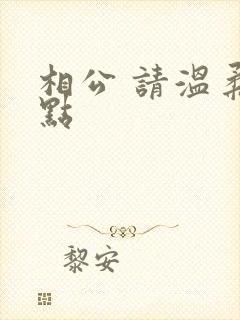 相公 請溫柔
點
黎安